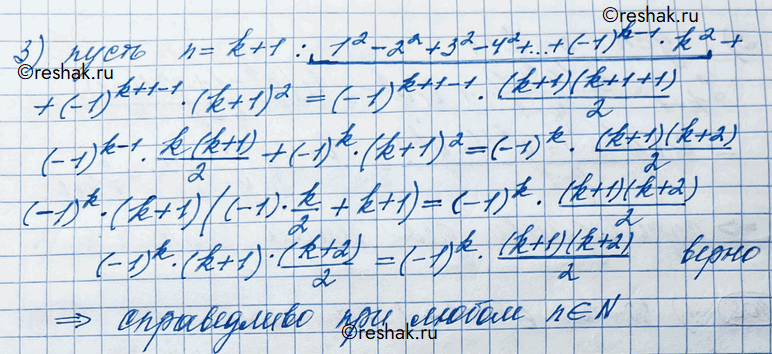 ©reshak.ru
3) пусть n = k+1 : 1² − 2² + 3² − 4² + ... + (−1)^(k−1) · k² +
©reshak.ru
+ (−1)^(k+1−1) · (k+1)² = (−1)^(k+1−1) · (k+1)(k+1+1)/2
(−1)^(k−1) · k(k+1)/2 + (−1)^k · (k+1)² = (−1)^k · (k+1)(k+2)/2
(−1)^k · (k+1) ((−1) · k/2 + k+1) = (−1)^k · (k+1)(k+2)/2
(−1)^k · (k+1) · (k+2)/2 = (−1)^k · (k+1)(k+2)/2 верно
⇒ справедливо при любом n∈N
©reshak.ru